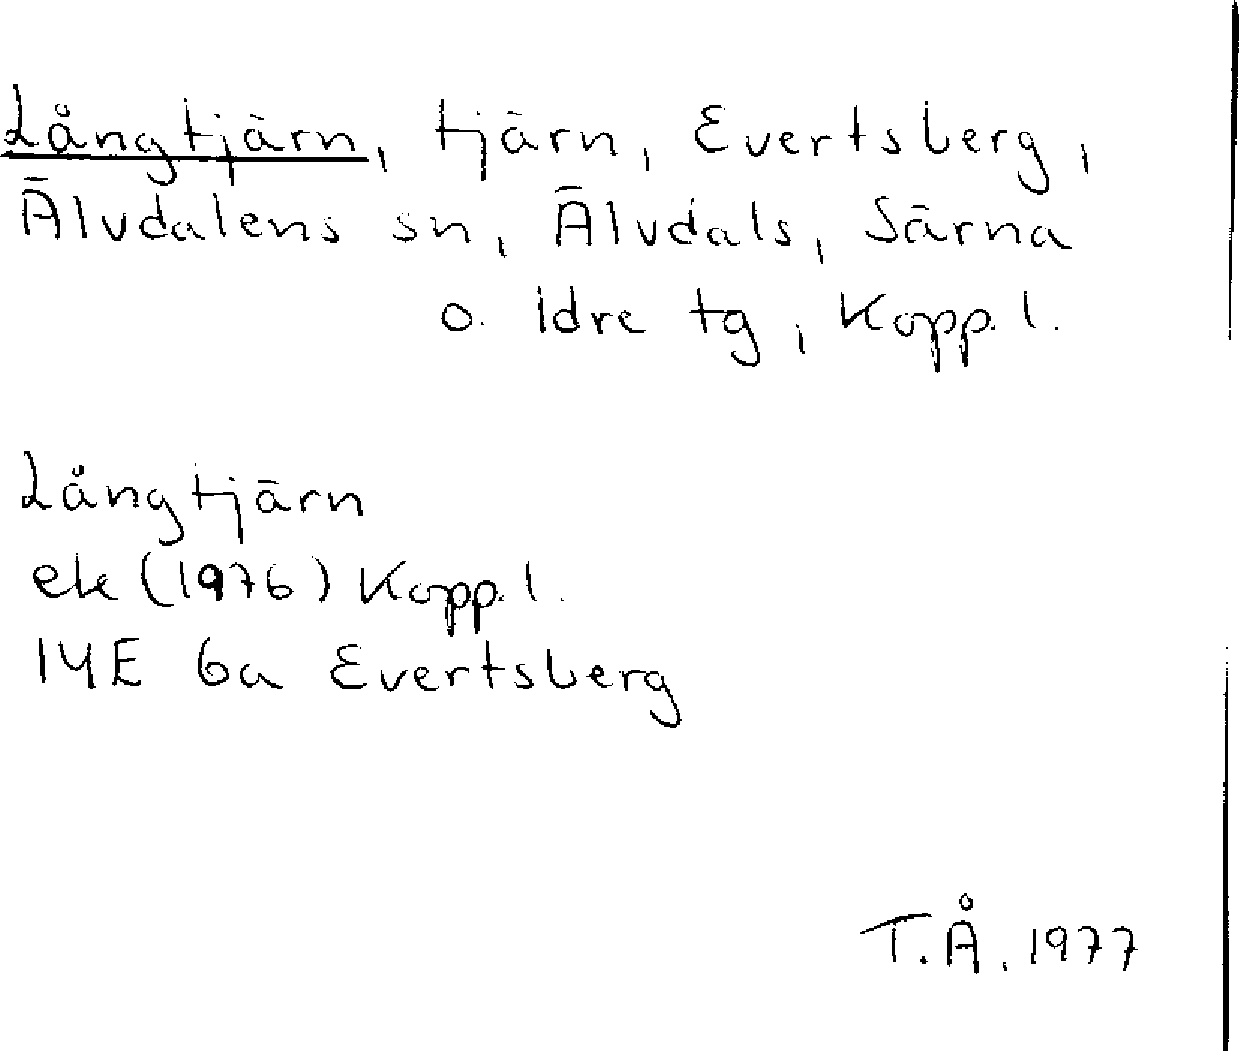 Långtjärn, tjärn, Evertsberg,
Älvdalens sn, Älvdals, Särna
o. Idre tg, Kopp. l.
Långtjärn
ek (1976) Kopp. l.
14E 6a Evertsberg
T.Å. 1977